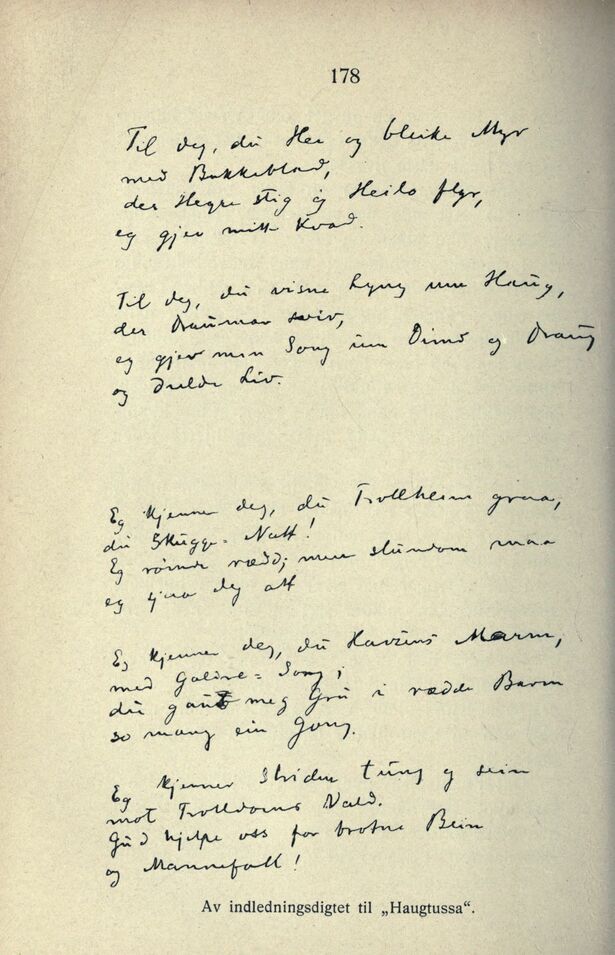 178
Til deg, du Hei og bleike Myr
med Bukkeblad,
der Hegre stig og Heilo flyr,
eg gjev mitt Kvad.
Til deg, du visne Lyng um Haug,
der Draumar sviv,
eg gjev min Song um Dimd og Draug
og dulde Liv.
Eg kjenner deg, du Trollheim graa,
du Skugge-Natt!
Eg rømde rædd; men stundom maa
eg sjaa deg att
Eg kjenner deg, du Havsens Marm,
med Galdre-Song;
du gaut meg Gru i rædde Barm
so mang ein Gong.
Eg kjenner Striden tung og sein
mot Trolldoms Vald.
Gud hjelpe oss for brotne Bein
og Mannefall!
Av indledningsdigtet til „Haugtussa“.